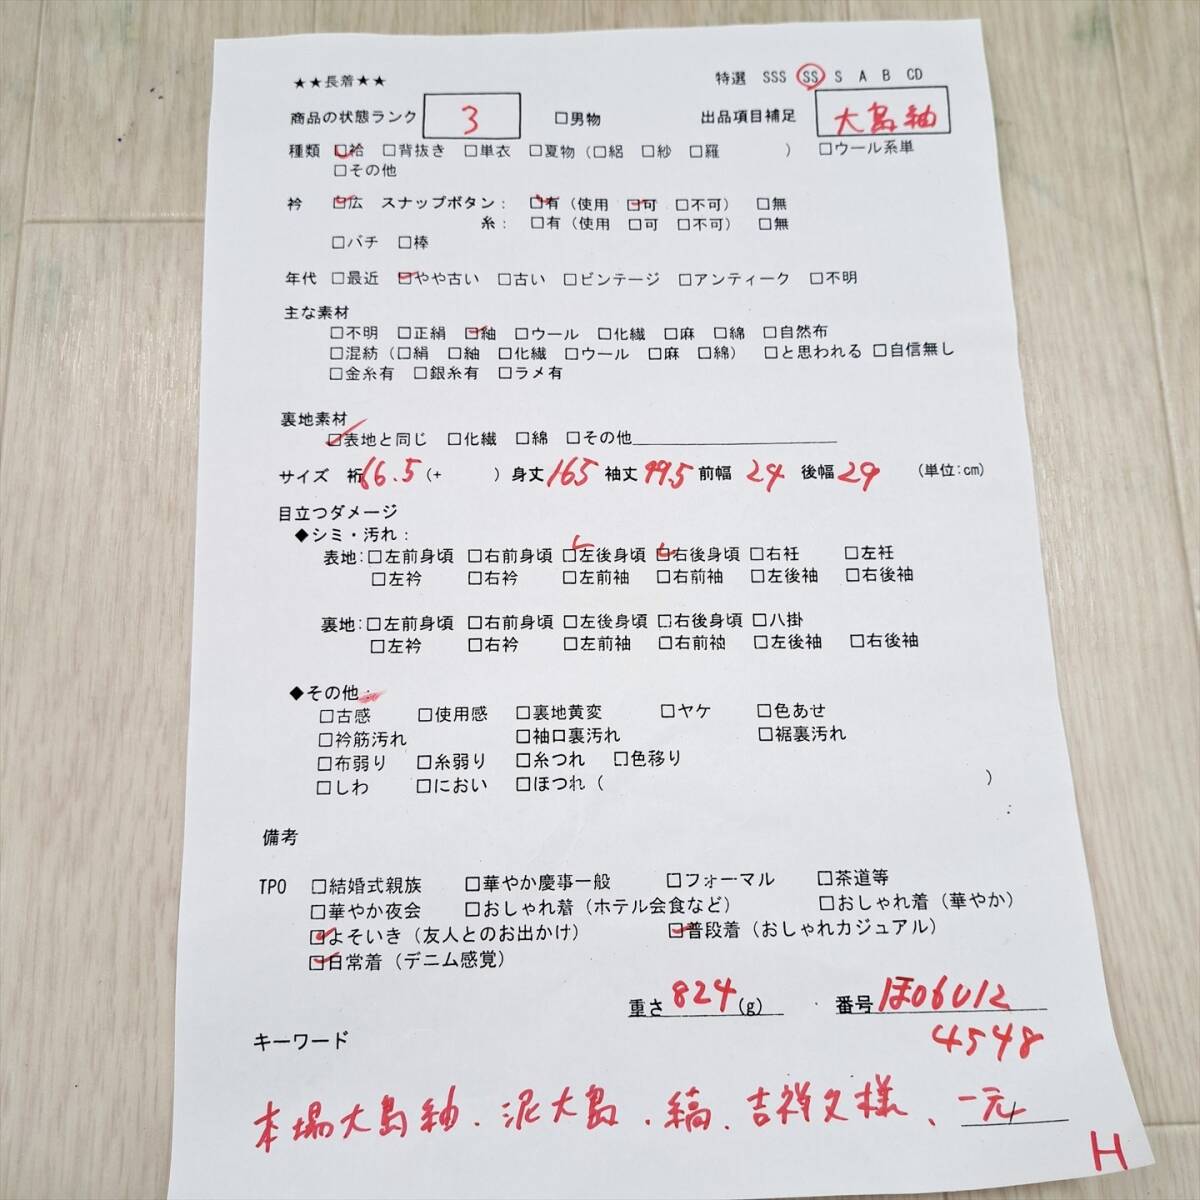 ★★長着★★ 特選 SSS SS S A B CD
商品の状態ランク 3 □男物 出品項目補足 大島紬
種類 □袷 □背抜き □単衣 □夏物 (□絽 □紗 □羅 ) □ウール系単
□その他
衿 □広 スナップボタン: □有 (使用 □可 □不可) □無
糸: □有 (使用 □可 □不可) □無
□バチ □棒
年代 □最近 □やや古い □古い □ビンテージ □アンティーク □不明
主な素材
□不明 □正絹 □紬 □ウール □化繊 □麻 □綿 □自然布
□混紡 (□絹 □紬 □化繊 □ウール □麻 □綿) □と思われる □自信無し
□金糸有 □銀糸有 □ラメ有
裏地素材
□表地と同じ □化繊 □綿 □その他
サイズ 裄 66.5 (+ ) 身丈 165 袖丈 49.5 前幅 24 後幅 29 (単位:cm)
目立つダメージ
◆シミ・汚れ:
表地:□左前身頃 □右前身頃 □左後身頃 □右後身頃 □右衽 □左衽
□左衿 □右衿 □左前袖 □右前袖 □左後袖 □右後袖
裏地:□左前身頃 □右前身頃 □左後身頃 □右後身頃 □八掛
□左衿 □右衿 □左前袖 □右前袖 □左後袖 □右後袖
◆その他:
□古感 □使用感 □裏地黄変 □ヤケ □色あせ
□衿筋汚れ □袖口裏汚れ □裾裏汚れ
□布弱り □糸弱り □糸つれ □色移り
□しわ □におい □ほつれ ( )
備考
TPO □結婚式親族 □華やか慶事一般 □フォーマル □茶道等
□華やか夜会 □おしゃれ着 (ホテル会食など) □おしゃれ着 (華やか)
□よそいき (友人とのお出かけ) □普段着 (おしゃれカジュアル)
□日常着 (デニム感覚)
重さ 824 (g) 番号 ほ06012
4548
キーワード
本場大島紬、泥大島、縞、吉祥文様、一元
H